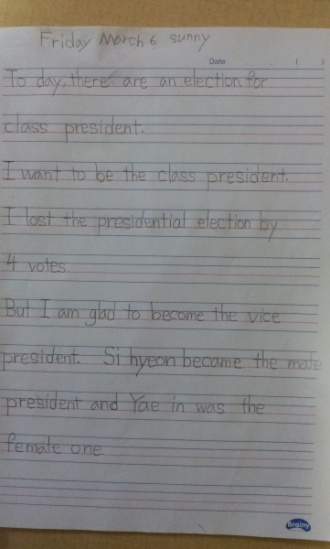 Friday March 6 sunny
Date ( )
To day, there are an election for
class president.
I want to be the class president.
I lost the presidential election by
4 votes
But I am glad to become the vice
president. Si hyeon became the male
president and Yae in was the
female one
Brainy